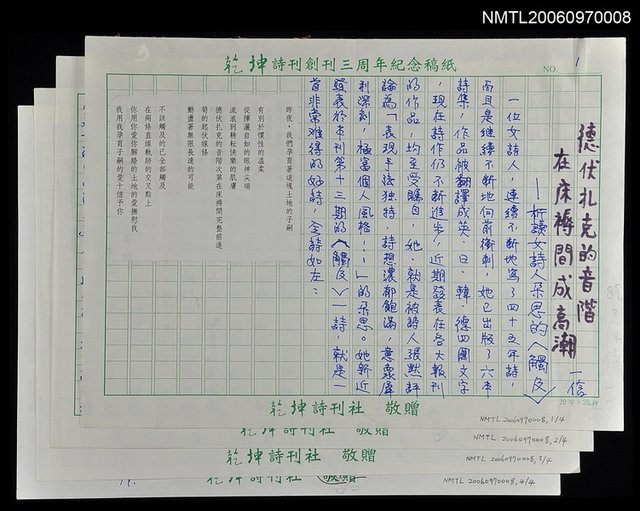 NMTL20060970008
乾坤詩刊創刊三周年紀念稿紙
NO. 1
德伏扎克的音階
在床褥間成高潮
一信
—析讀女詩人朵思的〈觸及〉
一位女詩人,連續不斷地寫了四十五年詩,
而且是繼續不斷地向前衝刺,她已出版了六本
詩集,作品被翻譯成英、日、韓、德四國文字
,現在詩作仍不斷進步,近期發表在各大報刊
的作品,均至受矚目,她,就是被詩人張默評
論為「表現手法獨特,詩想濃郁飽滿,意象犀
利深刻,極富個人風格……」的朵思。她新近
發表於本刊第十三期的〈觸及〉一詩,就是一
首非常难得的好詩,全詩如左:
昨夜,我們孕育著這塊土地的子嗣
有別於慣性的溫柔
從揮灑自如的眼神尖端
流浪到耕耘快樂的肌膚
德伏扎克的音階次第在床褥間完整前進
菊的起伏線條
動盪著無限長遠的可能
不該觸及的已全部觸及
在兩條直線軌跡的交叉點上
你用你愛你腳踏的土地的愛撫慰我
我用我孕育子嗣的愛十倍予你
20字×20行
乾坤詩刊社 敬贈
NMTL 20060970008,1/4
乾坤詩刊社 敬贈
NMTL 20060970008,2/4
乾坤詩刊社 敬贈
NMTL 20060970008,3/4
乾坤詩刊社 敬贈
NMTL 20060970008,4/4